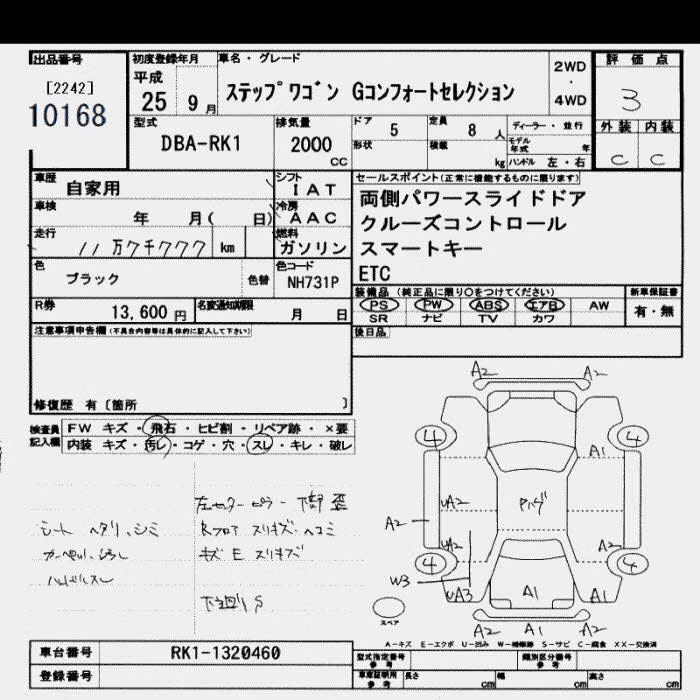 出品番号
[2242]
10168
初度登録年月
平成
25 9月
車名・グレード
ステップワゴン Gコンフォートセレクション
2WD
・
4WD
評価点
3
外装 内装
C C
型式
DBA-RK1
排気量
2000
CC
ドア 5
形状
定員 8 人
積載 kg
ディーラー・並行
モデル年式 年
ハンドル 左・右
車歴
自家用
シフト
IAT
車検
年 月( 日)
冷房
AAC
走行
11万7千777 km
燃料
ガソリン
色
ブラック
色替
色コード
NH731P
R券
13,600円
名変通知期限
月 日
セールスポイント(正常に機能するものに限ります)
両側パワースライドドア
クルーズコントロール
スマートキー
ETC
装備品(純正品に限り○をつけてください)
PS PW ABS エアB AW
SR ナビ TV カワ
新車保証書
有・無
後日品
注意事項申告欄(不具合内容等は具体的に記入して下さい)
修復歴 有〔箇所 〕
検査員
記入欄
FW キズ・飛石・ヒビ割・リペア跡・×要
内装 キズ・汚レ・コゲ・穴・スレ・キレ・破レ
左センターピラー下部 歪
シート ヘタリ、シミ
Rフロア スリキズ・ヘコミ
キズ E スリキズ
ハンドルスレ
下廻り S
A2 A2
4 4
A1
UA2
Pパゲ
A2
UA2
A2
4 4
W3
UA3
A1
A2 A1 A2
スペア
A-キズ E-エクボ U-凹み W-補修跡 S-サビ C-腐食 XX-交換済
車台番号
RK1-1320460
登録番号
型式指定番号
参考
類別区分番号
参考
車庫証明用
参考
長さ cm
幅 cm
高さ cm